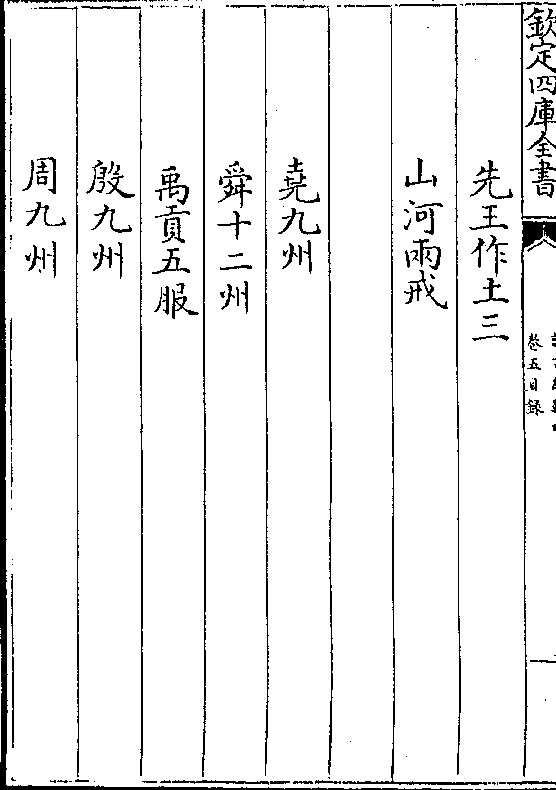 欽定四庫全書
卷五目録
先王作土三
山河兩戒
堯九州
舜十二州
禹貢五服
殷九州
周九州